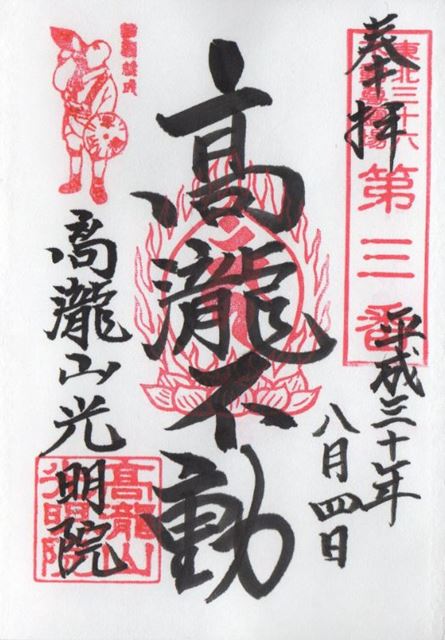 奉拝
東北三十六
第三番
平成三十年
八月四日
高瀧不動
高瀧山光明院
高龍山
光明院